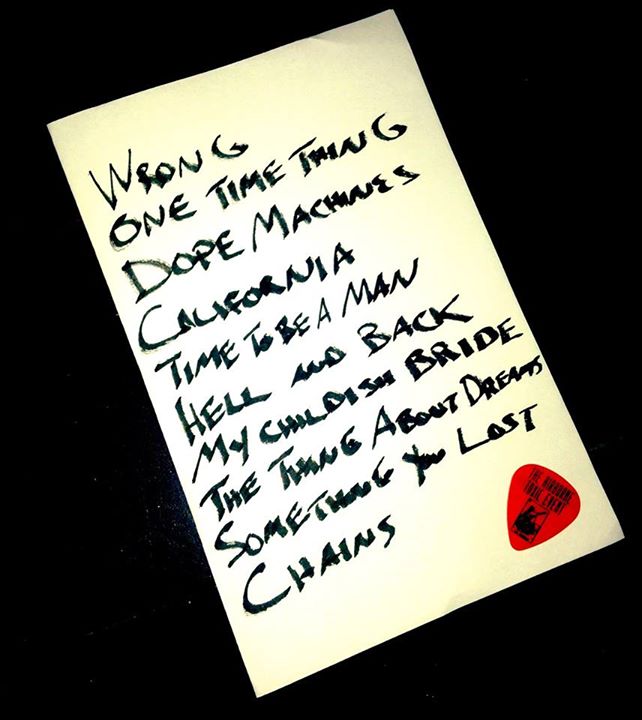 WRONG
ONE TIME THING
DOPE MACHINES
CALIFORNIA
TIME TO BE A MAN
HELL AND BACK
MY CHILDISH BRIDE
THE THING ABOUT DREAMS
SOMETHING YOU LOST
CHAINS
THE AIRBORNE
TOXIC EVENT